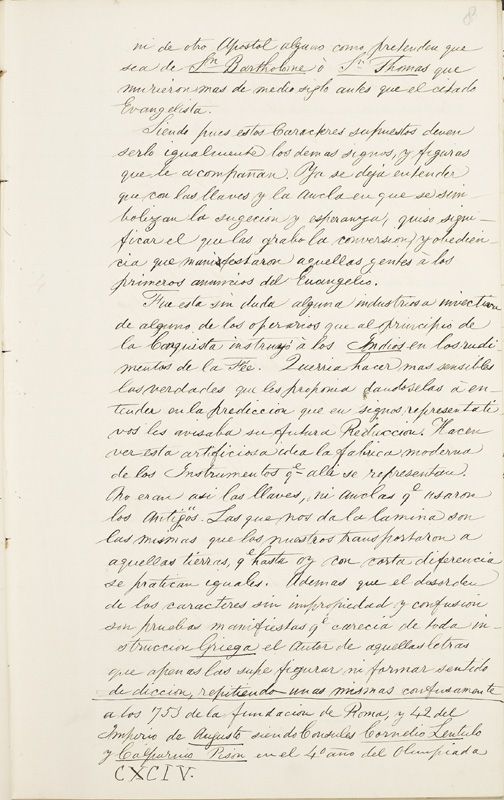 8
ni de otro Apostol alguno como pretenden que
sea de Sn. Bartholome ò Sn. Thomas que
murieron mas de medio siglo antes que el citado
Evangelista.
Siendo pues estos Caracteres supuestos deven
serlo igualmente los demas signos, y figuras
que le acompañan. Ya se deja entender
que con las llaves y la Ancla en que se sim
bolizan la sugecion y esperanza, quiso signi-
ficar el que las grabo la conversion y obedien-
cia que manifestaron aquellas gentes à los
primeros anuncios del Evangelio.
Fue esta sin duda alguna industriosa invectura
de alguno de los operarios que al principio de
la Conquista instruyó à los Indios en los rudi
mentos de la Fée. Querria hacer mas sensibles
las verdades que les proponia dandoselas à en-
tender en la prediccion que en signos representati
vos les avisaba su futura Reduccion. Hacen
ver esta artificiosa idea la fabrica moderna
de los Instrumentos qe alli se representan.
No eran asi las llaves, ni Anclas qe usaron
los Antigos. Las que nos da la lamina son
las mismas que los nuestros transportaron a
aquellas tierras, qe hasta oy con corta diferencia
se pratican iguales. Ademas que el desorden
de los caracteres sin impropiedad y confusion
son pruebas manifiestas qe carecia de toda in-
struccion Griega el Autor de aquellas letras
que apenas las supo figurar ni formar sentido
de diccion, repitiendo unas mismas confusamente
a los 753 de la fundacion de Roma, y 42 del
Imperio de Augusto siendo Consules Cornelio Lentulo
y Calpurnio Pison en el 4o año del Olimpiada
CXCIV.